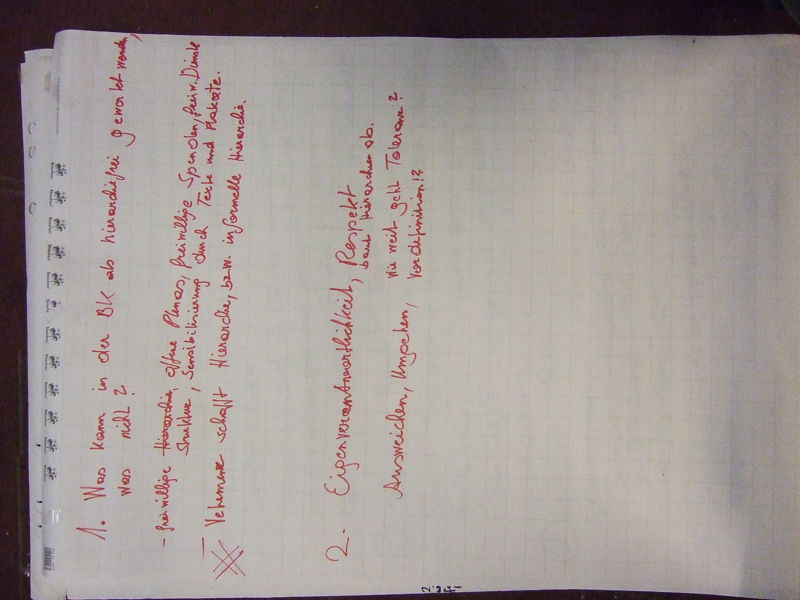 1. Was kann in der BK als hierarchiefrei gewertet werden,
was nicht?
- freiwillige Hierarchie, offene Plenas, freiwillige Spenden, freiw. Dienste
Struktur, Sensibilisierung durch Texte und Plakate.
- Vehemenz schafft Hierarchie, bzw. informelle Hierarchie.
2. Eigenverantwortlichkeit, Respekt
baut Hierarchien ab.
Ausweichen, Umgehen, Wie weit geht Toleranz?
Vordefinition!?